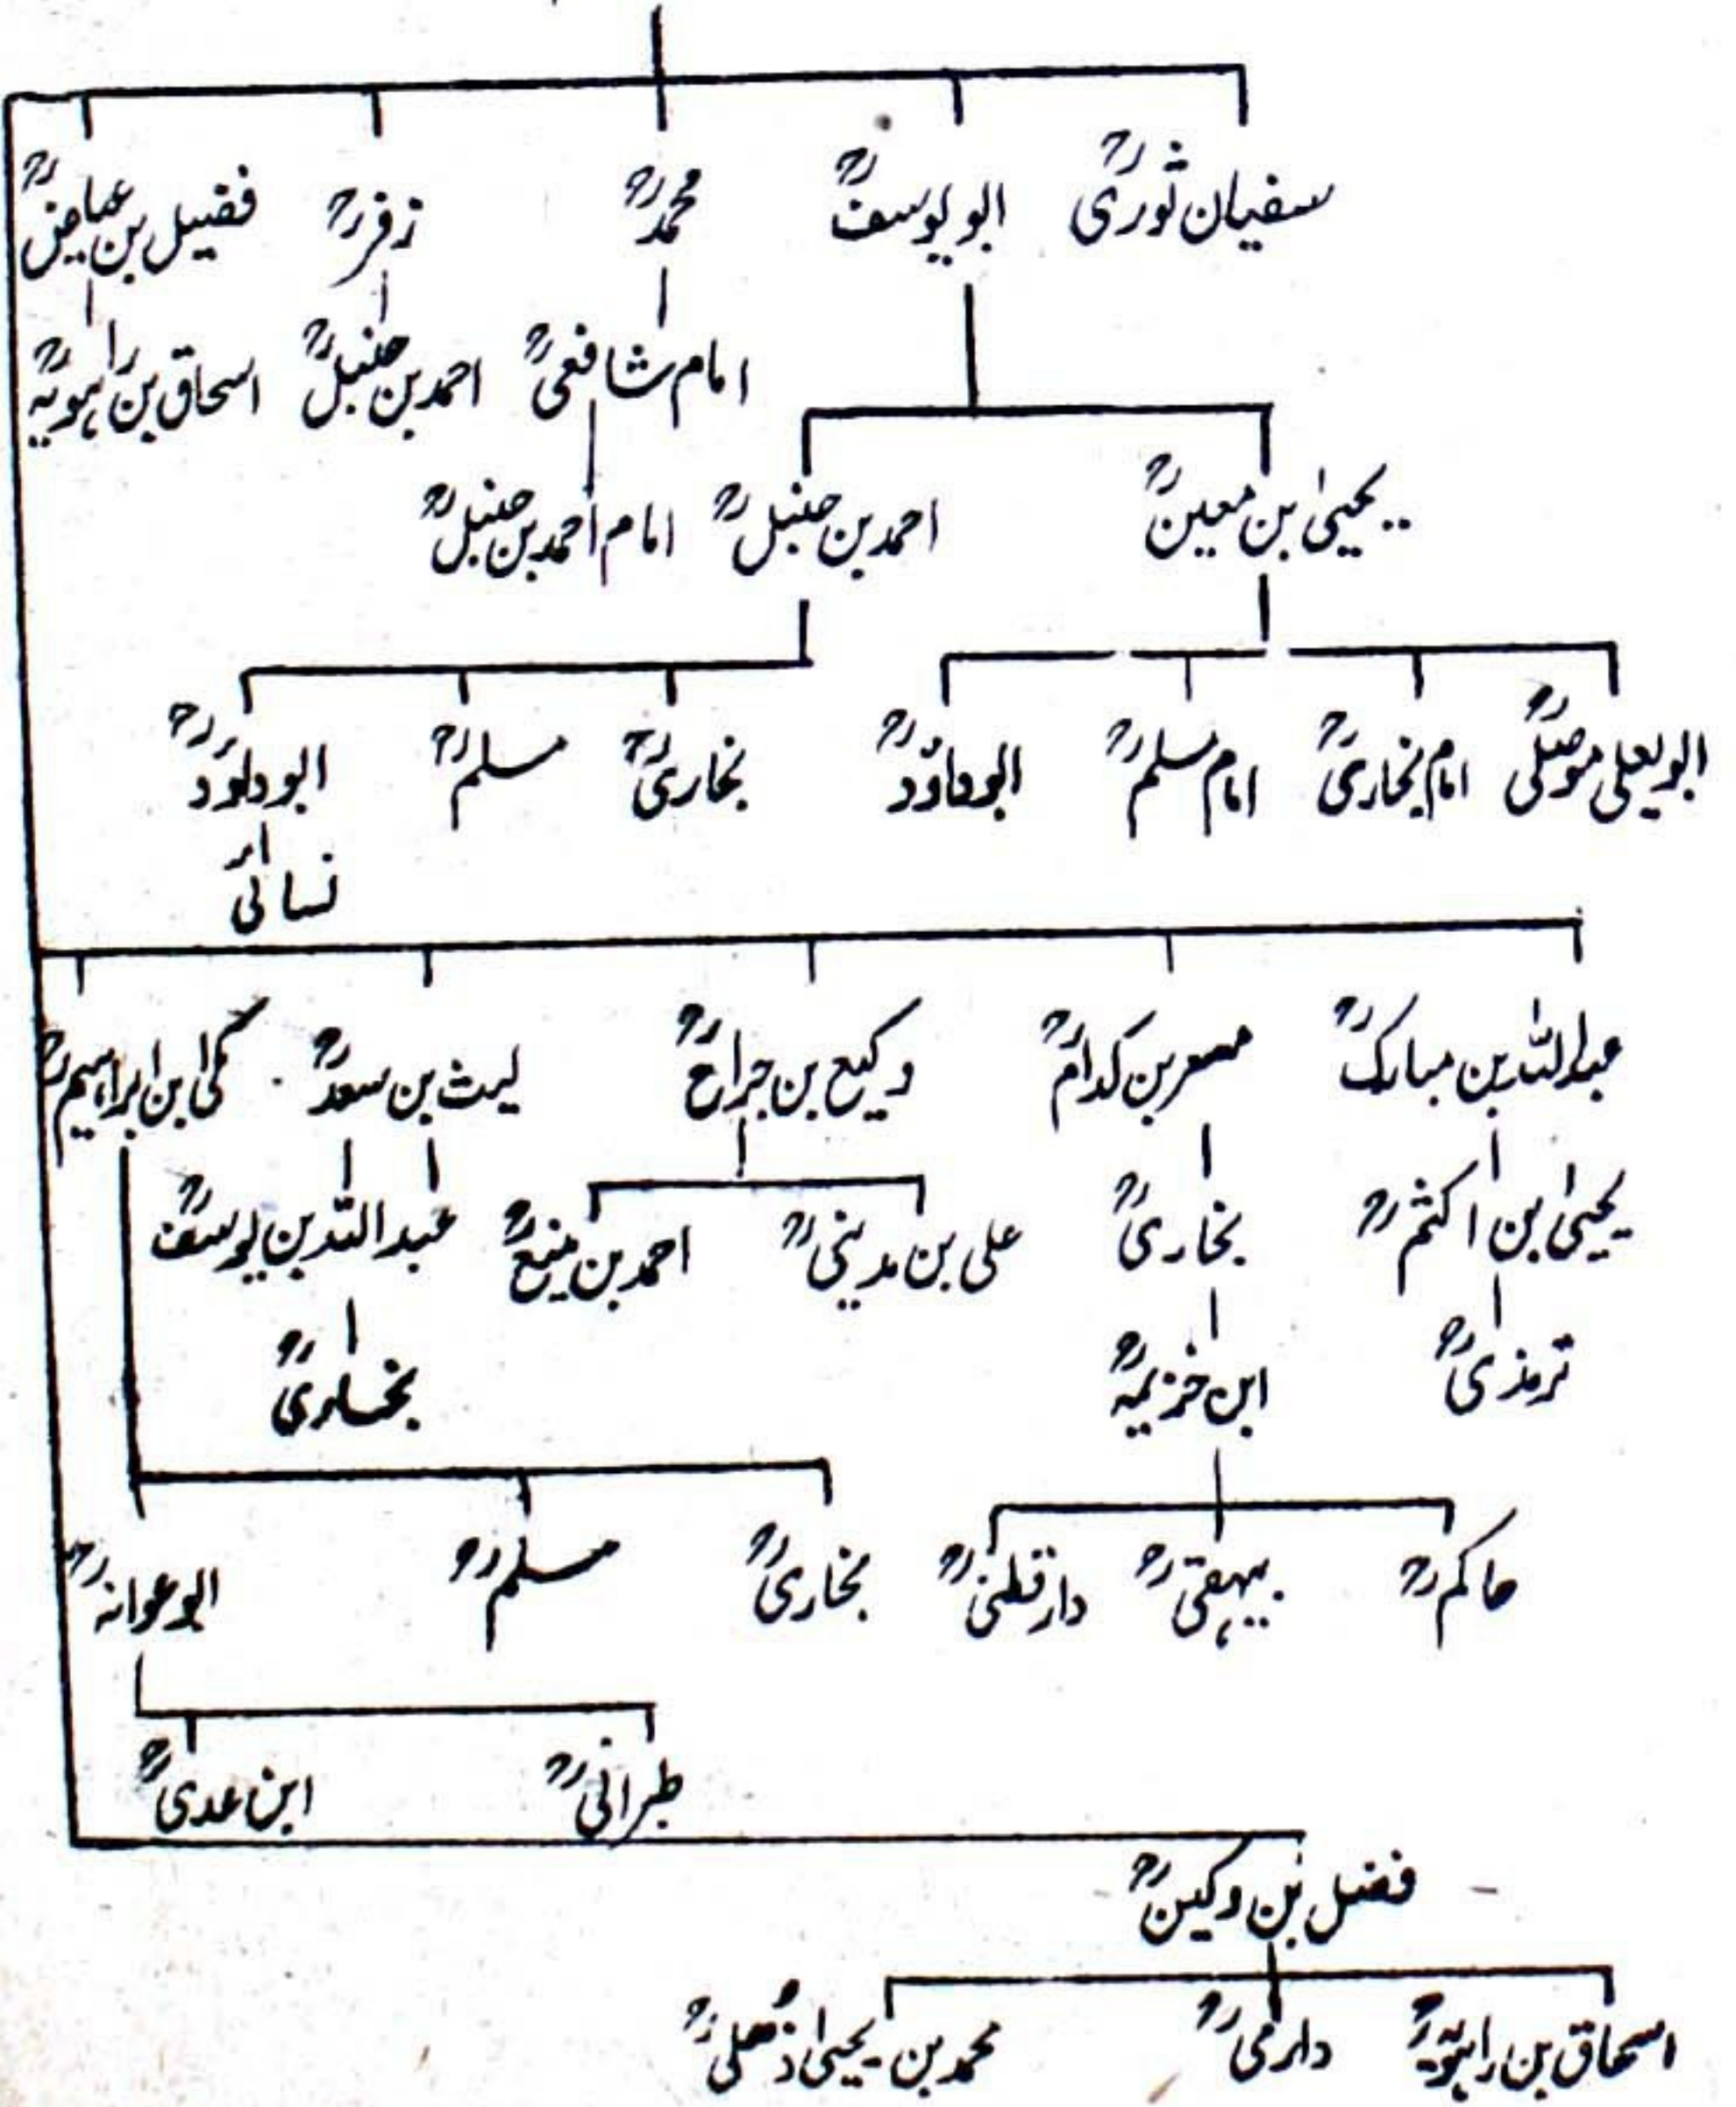 سفیان ثوریؒ ابو یوسفؒ محمدؒ زفرؒ فضیل بن عیاضؒ
امام شافعیؒ احمد بن حنبلؒ اسحاق بن راہویہؒ
یحییٰ بن معینؒ احمد بن حنبلؒ امام احمد بن حنبلؒ
ابو یعلی موصلیؒ امام بخاریؒ امام مسلمؒ ابوداؤدؒ بخاریؒ مسلمؒ ابوداؤدؒ
نسائیؒ
عبداللہ بن مبارکؒ مسعر بن کدامؒ وکیع بن جراحؒ لیث بن سعدؒ مکی ابن ابراہیمؒ
یحییٰ بن اکثمؒ بخاریؒ علی بن مدینیؒ احمد بن منیعؒ عبداللہ بن یوسفؒ
ترمذیؒ ابن خزیمہؒ بخاریؒ
حاکمؒ بیہقیؒ دارقطنیؒ بخاریؒ مسلمؒ ابوعوانہؒ
طبرانیؒ ابن عدیؒ
فضل بن وکینؒ
اسحاق بن راہویہؒ دارمیؒ محمد بن یحییٰ ذُھلیؒ